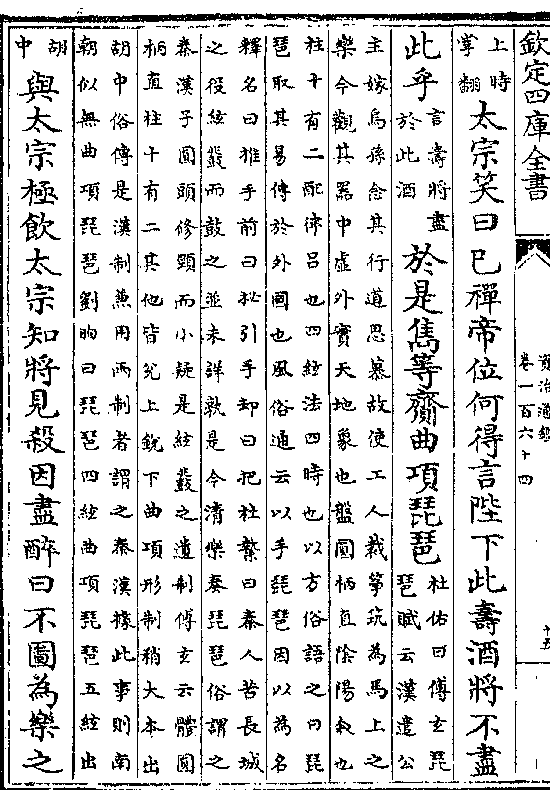 欽定四庫全書
資治通鑑
卷一百六十四
十五
上時
掌翻
太宗笑曰已禪帝位何得言陛下此壽酒將不盡
此乎
言壽將盡
於此酒
於是雋等齎曲項琵琶
杜佑曰傅玄琵
琶賦云漢遣公
主嫁烏孫念其行道思慕故使工人裁箏筑為馬上之
樂今觀其器中虛外實天地象也盤圓柄直陰陽敘也
柱十有二配律呂也四絃法四時也以方俗語之曰琵
琶取其易傳於外國也風俗通云以手琵琶因以為名
釋名曰推手前曰批引手却曰把杜摯曰秦人苦長城
之役絃鼗而鼓之並未詳孰是今清樂奏琵琶俗謂之
秦漢子圓頭修頸而小疑是絃鼗之遺制傅玄云體圓
柄直柱十有二其他皆兌上銳下曲項形制稍大本出
胡中俗傳是漢制兼用兩制者謂之秦漢據此事則南
朝似無曲項琵琶劉昫曰琵琶四絃曲項琵琶五絃出
胡
中
與太宗極飲太宗知將見殺因盡醉曰不圖為樂之